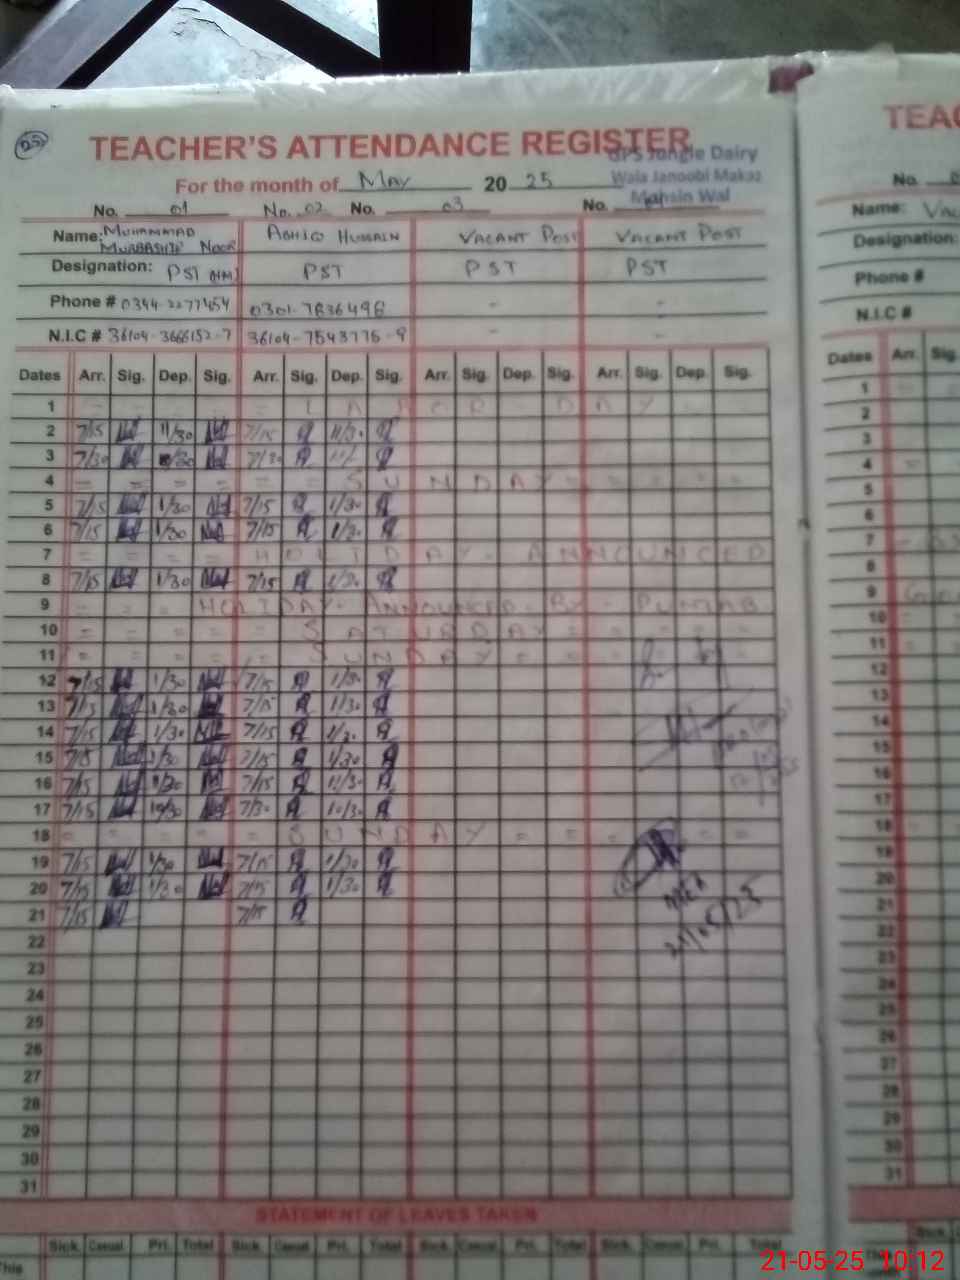 25
TEACHER'S ATTENDANCE REGISTER
GPS Jungle Dairy
Wala Janoobi Makaz
Mohsin Wal
For the month of MAY 20 25
No. 01 No. 02 No. 03 No.
Name: MUHAMMAD MUBBASHIR NOOR ASHIQ HUSSAIN VACANT POST VACANT POST
Designation: PST (HM) PST PST PST
Phone # 0344-2277454 0301-7836498 - -
N.I.C # 36104-3666152-7 36104-7543775-9 - -
Dates Arr. Sig. Dep. Sig. Arr. Sig. Dep. Sig. Arr. Sig. Dep. Sig. Arr. Sig. Dep. Sig.
1 LABOR DAY
2 7/15 11/30 7/15 11/30
3 7/30 7/30 11/
4 = = = = = = SUNDAY = = = = =
5 7/15 1/30 7/15 1/30
6 7/15 1/30 7/15 1/30
7 = = = = HOLIDAY - ANNOUNCED
8 7/15 1/30 7/15 1/30
9 HOLIDAY - ANNOUNCED - BY - PUNJAB
10 = = = = = SATURDAY = = = =
11 = = = = = SUNDAY = = =
12 7/15 1/30 7/15 1/30
13 7/15 1/30 7/15 1/30
14 7/15 1/30 7/15 1/30
15 7/15 1/30 7/15 1/30
16 7/15 7/15 11/30
17 7/15 10/30 7/30 10/30
18 = = = = = SUNDAY = = = = =
19 7/15 1/30 7/15 1/30
20 7/15 1/30 7/15 1/30
21 7/15 7/15
MEA
21/05/25
22
23
24
25
26
27
28
29
30
31
STATEMENT OF LEAVES TAKEN
Sick. Casual. Pri. Total Sick. Casual. Pri. Total Sick. Casual. Pri. Total Sick. Casual. Pri. Total
This
TEAC
No.
Name: VAC
Designation:
Phone #
N.I.C #
Dates Arr. Sig.
1
2
3
4
5
6
7
8
9
10
11
12
13
14
15
16
17
18
19
20
21
22
23
24
25
26
27
28
29
30
31
Sick
21-05-25 10:12